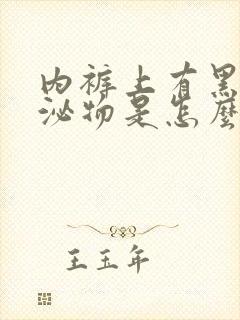 内裤上有黑
泌物是怎麼
王玉年